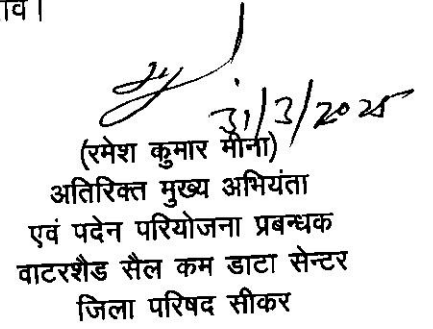 31/3/2025
(रमेश कुमार मीना)
अतिरिक्त मुख्य अभियंता
एवं पदेन परियोजना प्रबन्धक
वाटरशैड सैल कम डाटा सेन्टर
जिला परिषद सीकर